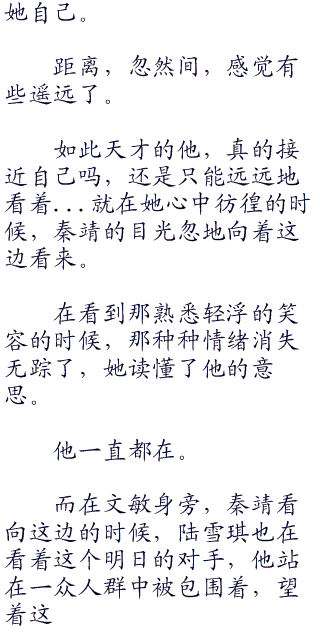 她自己。
距离，忽然间，感觉有
些遥远了。
如此天才的他，真的接
近自己吗，还是只能远远地
看着...就在她心中彷徨的时
候，秦靖的目光忽地向着这
边看来。
在看到那熟悉轻浮的笑
容的时候，那种种情绪消失
无踪了，她读懂了他的意
思。
他一直都在。
而在文敏身旁，秦靖看
向这边的时候，陆雪琪也在
看着这个明日的对手，他站
在一众人群中被包围着，望
着这